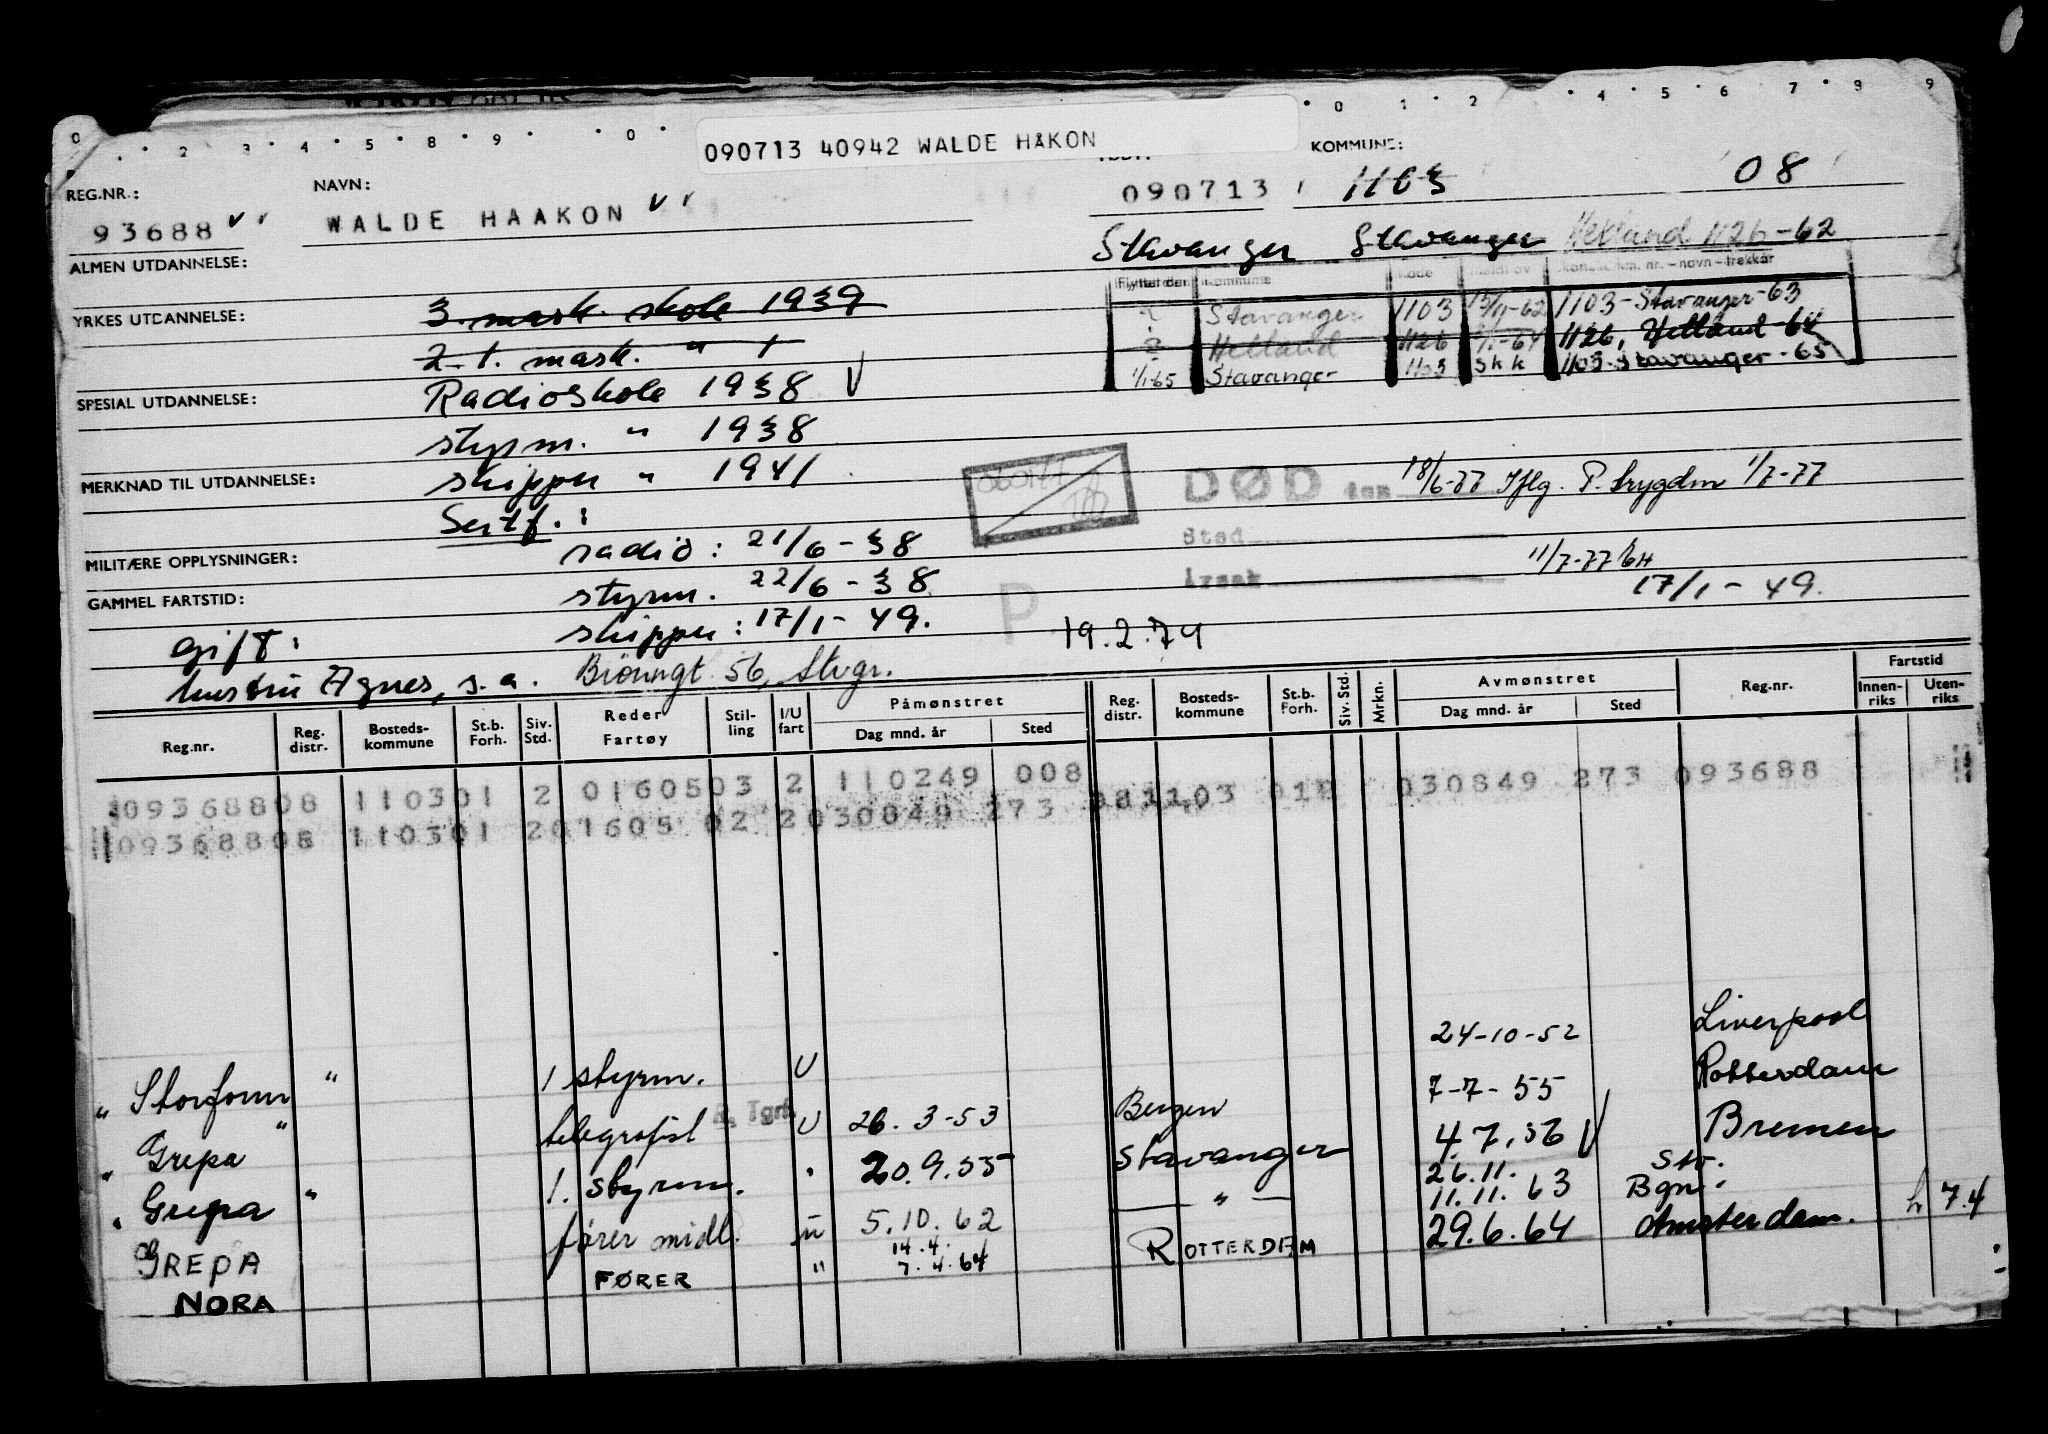 090713 40942 WALDE HÅKON
REG.NR.: NAVN: KOMMUNE:
93688 WALDE HAAKON 090713 1103 08
Stavanger Stavanger Hetland 1126-62
ALMEN UTDANNELSE:
Flyttet den Kommune Kode Meldt av Skattekomm. nr. - navn - trekkår
YRKES UTDANNELSE: 3. mask. skole 1939
? Stavanger 1103 15/11-62 1103-Stavanger-63
2 1. mask. " 1
? Hetland 1126 1/1-64 1126, Hetland-64
1/1-65 Stavanger 1103 Skk 1103-Stavanger-65
SPESIAL UTDANNELSE: Radioskole 1938
styrm. " 1938
MERKNAD TIL UTDANNELSE: skipper " 1941
DØD den 18/6-77 Iflg. P. trygdm 1/7-77
Sertf.:
Sted
MILITÆRE OPPLYSNINGER: radio: 21/6-38
11/7-77
Årsak
GAMMEL FARTSTID: styrm. 22/6-38
P 17/1-49.
gift: skipper: 17/1-49. 19.2.74
hustru Agnes, s.a. 56, Stvgr.
Reg.nr. Reg. distr. Bosteds-kommune St.b. Forh. Siv. Std. Reder Fartøy Stil-ling I/U fart Påmønstret Dag mnd. år Sted Reg. distr. Bosteds-kommune St.b. Forh. Siv. Std. Mrkn. Avmønstret Dag mnd. år Sted Reg.nr. Fartstid Innen-riks Uten-riks
09368808 110301 2 0160503 2 110249 008 081103 01 030849 273 093688
09368808 110301 201605 02 2030849 273
24-10-52 Liverpool
" Storfonn " 1 styrm. U 7-7-55 Rotterdam
" Grepa " telegrafist R. Tgrf. U 26.3-53 Bergen 4.7.56 Bremen
" Grepa " 1. styrm. " 20.9.55 Stavanger 26.11. Stv.
GREPA fører midl. u 5.10.62 — " — 11.11.63 Bgn.
14.4.
NORA FØRER " 7.4.64 ROTTERDAM 29.6.64 Amsterdam. 7.4